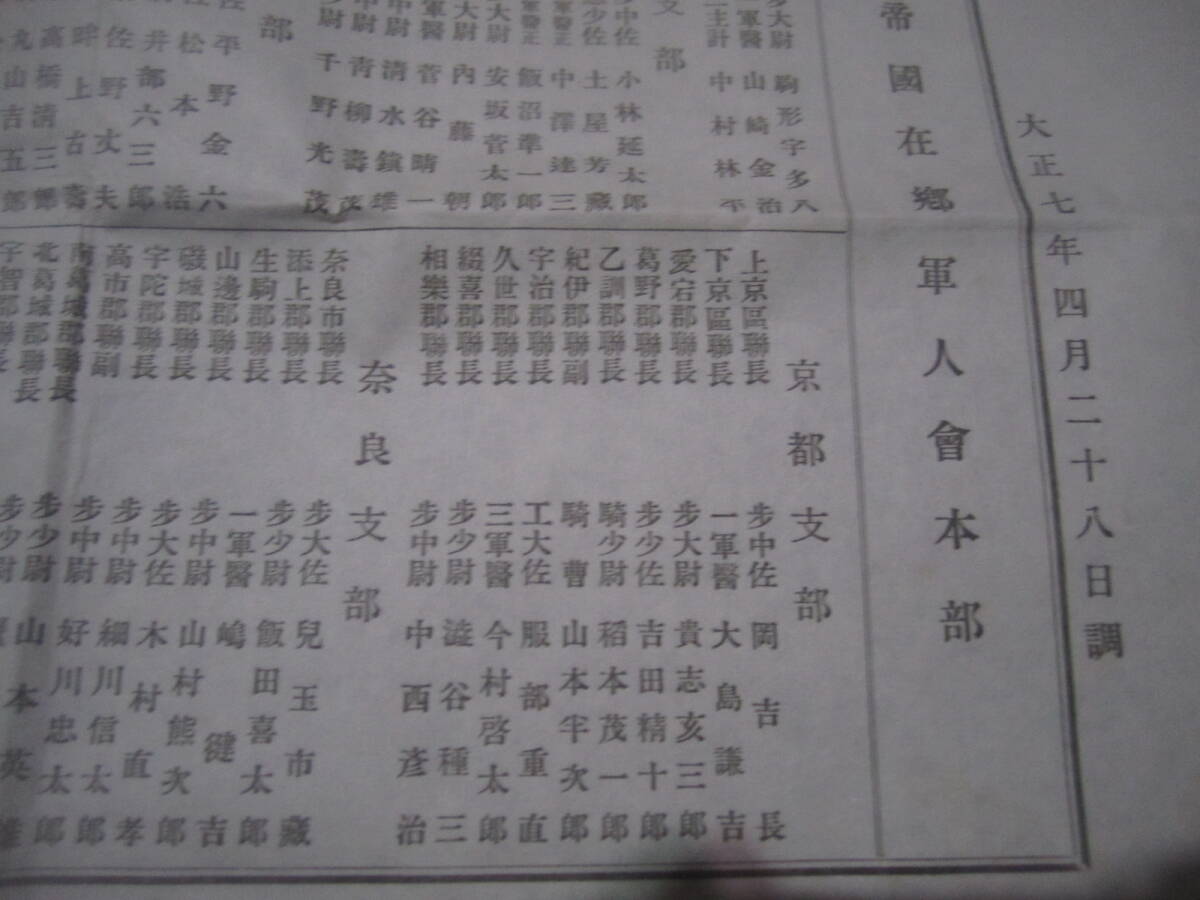 大正七年四月二十八日調
帝國在鄕軍人會本部
大尉 駒形宇多八
軍醫 山崎金治
主計 中村林平
支部
中佐 小林延太郎
少佐 土屋芳藏
軍醫正 中澤達三
軍醫正 飯沼準一郎
大尉 安坂菅太郎
大尉 內藤朝
軍醫 菅谷晴一
中尉 清水鎭雄
中尉 靑柳壽茂
少尉 千野光茂
部
佐 平野金六
佐 松本浩
井部六三郎
佐野丈夫
畔上古壽
高橋淸三郎
丸山吉五郎
京都支部
上京區聯長 步中佐 岡吉長
下京區聯長 一軍醫 大島謙吉
愛宕郡聯長 步大尉 貴志亥三郎
葛野郡聯長 步少佐 吉田精十郎
乙訓郡聯長 騎少尉 稻本茂一郎
紀伊郡聯副 騎曹 山本半次郎
宇治郡聯長 工大佐 服部重直
久世郡聯長 三軍醫 今村啓太郎
綴喜郡聯長 步少尉 澁谷種三
相樂郡聯長 步中尉 中西彥治
奈良支部
奈良市聯長 步大佐 兒玉市藏
添上郡聯長 步少尉 飯田喜太郎
生駒郡聯長 一軍醫 嶋健吉
山邊郡聯長 步中尉 山村熊次郎
磯城郡聯長 步大佐 木村直孝
宇陀郡聯長 步中尉 細川信太郎
高市郡聯副 步中尉 好川忠太郎
南葛城郡聯長 步少尉 山本英雄
北葛城郡聯長 步少尉
宇智郡聯長